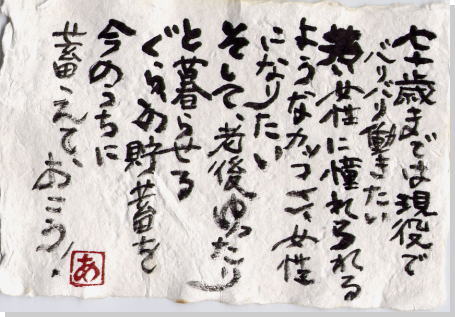 七十歳までは現役で
バリバリ働きたい
若い女性に憧れられる
ようなカッコイイ女性
になりたい
そして、老後ゆったり
と暮らせる
ぐらいの貯蓄を
今のうちに
蓄えておこう!
あ